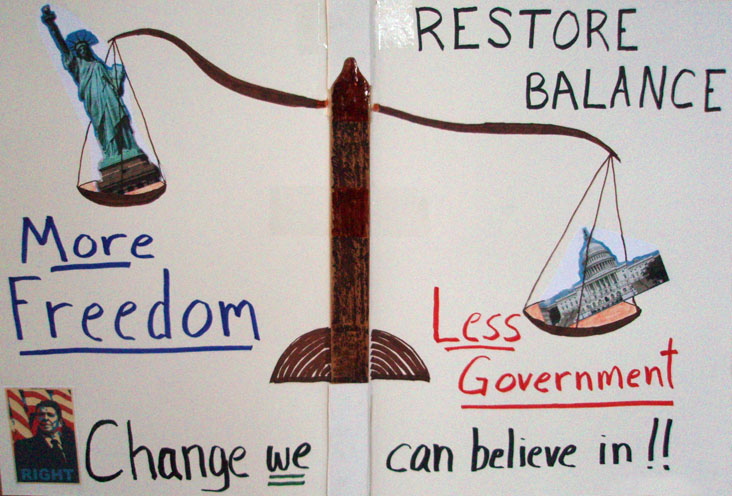 RESTORE
BALANCE
More
Freedom
Less
Government
RIGHT
Change we can believe in!!